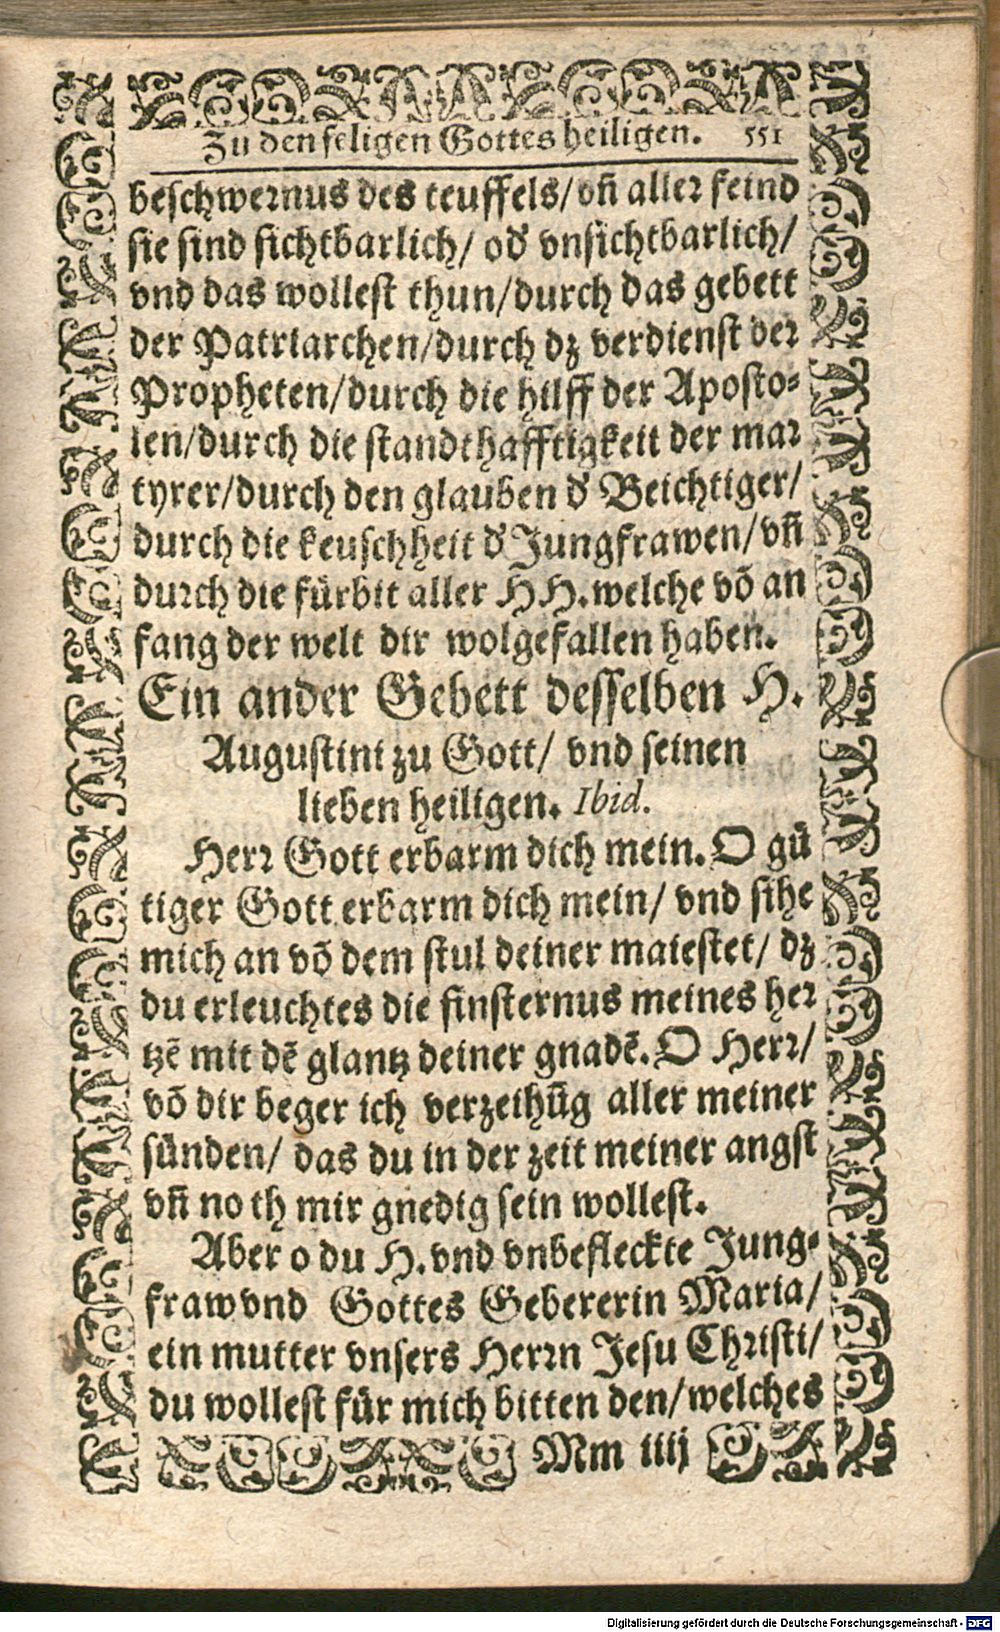 Zu den seligen Gottes heiligen. 551
beschwernus des teuffels/ vñ aller feind
sie sind sichtbarlich/ od' vnsichtbarlich/
vnd das wollest thun/durch das gebett
der Patriarchen/durch dz verdienst der
Propheten/durch die hilff der Aposto⸗
len/durch die standthafftigkeit der mar
tyrer/durch den glauben d' Beichtiger/
durch die keuschheit d' Jungfrawen/ vñ
durch die fürbit aller HH. welche võ an
fang der welt dir wolgefallen haben.
Ein ander Gebett desselben H.
Augustini zu Gott/ vnd seinen
lieben heiligen. Ibid.
Herr Gott erbarm dich mein. O gü
tiger Gott erbarm dich mein/ vnd sihe
mich an võ dem stul deiner maiestet/ dz
du erleuchtes die finsternus meines her
tzẽ mit dẽ glantz deiner gnadẽ. O Herr/
võ dir beger ich verzeihũg aller meiner
sünden/ das du in der zeit meiner angst
vñ noth mir gnedig sein wollest.
Aber o du H. vnd vnbefleckte Jung⸗
fraw vnd Gottes Gebererin Maria/
ein mutter vnsers Herrn Jesu Christi/
du wollest für mich bitten den/ welches
Mm iiij
Digitalisierung gefördert durch die Deutsche Forschungsgemeinschaft - DFG